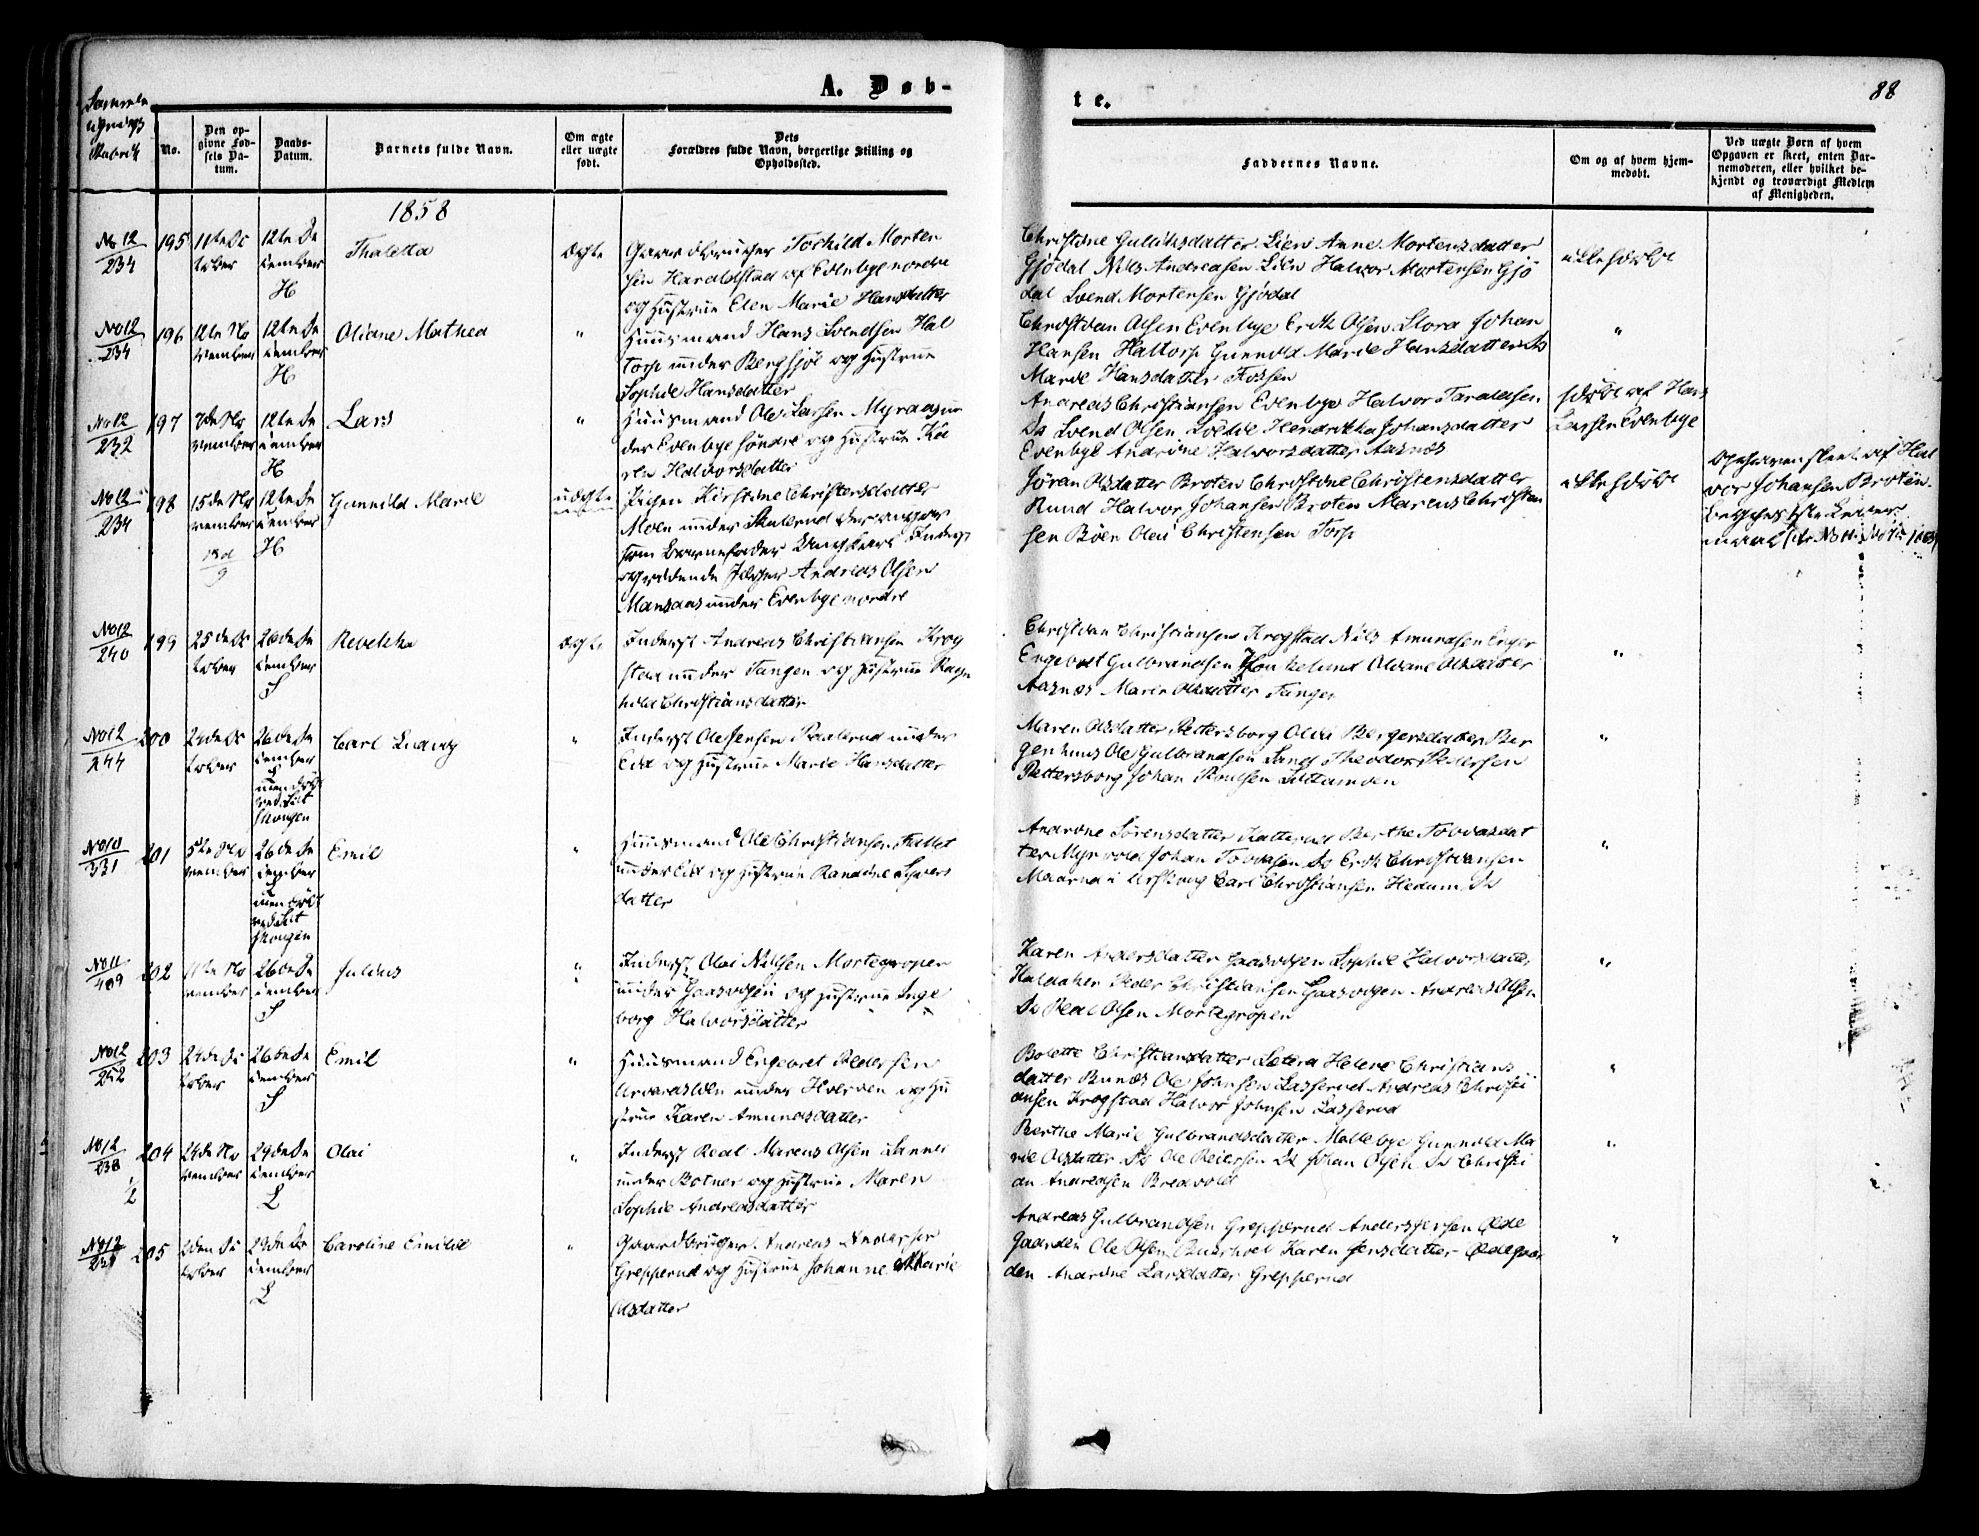 A. Døb-
te.
88
No.
Den op-
givne Fød-
sels Da-
tum.
Daabs-
Datum.
Barnets fulde Navn.
Om ægte
eller uægte
født.
Dets
Forældres fulde Navn, borgerlige Stilling og
Opholdssted.
Faddernes Navne.
Om og af hvem hjem-
medøbt.
Ved uægte Børn af hvem
Opgaven er skeet, enten Bar-
nemoderen, eller hvilket be-
kjendt og troværdigt Medlem
af Menigheden.
1858
No 12
234
195
11te Oc
tober
12te De
cember
H
Thaletta
ægte
Gaardbruger Torkild Morten
sen Haraldstad af Evenbye nordre
og Hustrue Elen Marie Hansdatter
Christine Gulliksdatter Lien Anne Mortensdatter
Gjødal Nils Andreasen Lien Halvor Mortensen Gjø
dal Svend Mortensen Gjødal
ikke hjdøbt
No 12
234
196
12te No
vember
12te De
cember
H
Oliane Mathea
"
Huusmand Hans Svendsen Hal
torp under Bergsjøe og Hustrue
Sophie Hansdatter
Christian Olsen Evenbye Erik Olsen Johan
Hansen Haltorp Gunnild Marie Hansdatter Ds
Marie Hansdatter Fossen
"
No 12
232
197
7de No
vember
12te De
cember
H
Lars
"
Huusmand Ole Larsen Myra un
der Evenbye søndre og Hustrue Ka
ren Halvorsdatter
Andreas Christiansen Evenbye Halvor Taraldsen
Ds Svend Olsen Hendrikka Johansdatter
Evenbye Andrine Halvorsdatter Aasnæs
hjdøbt af Hans
Larsen Evenbye
No 12
234
198
15de No
vember
12te De
cember
H
Gunnild Marie
uægte
Pigen Kirstine Christensdatter
Moen under Skulerud der angav
som Barnefader Ungkarl Inderst
Andreas Olsen
under Evenbye nordre
Jøran Olsdatter Broten Christine Christensdatter
Rund Halvor Johansen Broten Marcus Christen
sen Olai Christensen Torp
ikke hjdøbt
Opgaven skeet af Hal
vor Johansen Broten
No 12
240
199
25de Oc
tober
26de De
cember
S
Rebekka
ægte
Inderst Andreas Christiansen Krog
stad under Tangen og Hustrue Ragn
hild Christiansdatter
Christian Christiansen Krogstad Nils Amundsen Enger
Engebret Gulbrandsen Oliane Olsdatter
Aasnæs Maren Olsdatter Tangen
"
No 12
244
200
24de Oc
tober
26de De
cember
S
Carl Ludvig
"
Inderst Ole Jensen under
Eid og Hustrue Marie Hansdatter
Maren Olsdatter Pettersborg Olai Bergersdatter Ber
genhuus Ole Gulbrandsen Sand Theodor Pedersen
Pettersborg Johan Poulsen
"
No 10
331
201
5te No
vember
26de De
cember
Emil
"
Huusmand Ole Christiansen Fallet
under Eid og Hustrue Randine Syvers
datter
Andrine Sørensdatter Katterud Berthe Tobiasdat
ter Myrvold Johan Tobiasen Ds Erik Christiansen
i Urskoug Carl Christiansen Hedum Ds
"
No 11
409
202
11te No
vember
26de De
cember
S
Julius
"
Inderst Olai Nilsen Mortegropen
under Gaasvigen og Hustrue Inge
borg Halvorsdatter
Karen Andersdatter Gaasvigen Sophie Halvorsdatter
Haldaker Peder Christiansen Gaasvigen Andreas Olsen
Ds Peal Olsen Mortegropen
"
No 12
252
203
24de Oc
tober
26de De
cember
S
Emil
"
Huusmand Engebret Pedersen
under og Hu
strue Karen Amundsdatter
Bolette Christiansdatter Helene Christians
datter Bunæs Ole Johnsen Lasserud Andreas Christi
ansen Krogstad Halvor Johnsen Lasserud
"
No 12
238
1/2
204
24de No
vember
29de De
cember
L
Olai
"
Inderst Peal Marcus Olsen
under Botner og Hustrue Maren
Sophie Andreasdatter
Berthe Marie Gulbrandsdatter Mallebye Gunnild Ma
rie Olsdatter Ds Ole Peiersen Ds Johan Olsen Ds Christi
an Andreasen Bredvold
"
No 12
205
2den Oc
tober
29de De
cember
L
Caroline Emilie
"
Gaardbruger Andreas Andersen
Grepperud og Hustrue Johanne Marie
Olsdatter
Andreas Gulbrandsen Grepperud Anders Jensen Øde
gaarden Ole Olsen Karen Jensdatter Ødegaar
den Andrine Larsdatter Grepperud
"